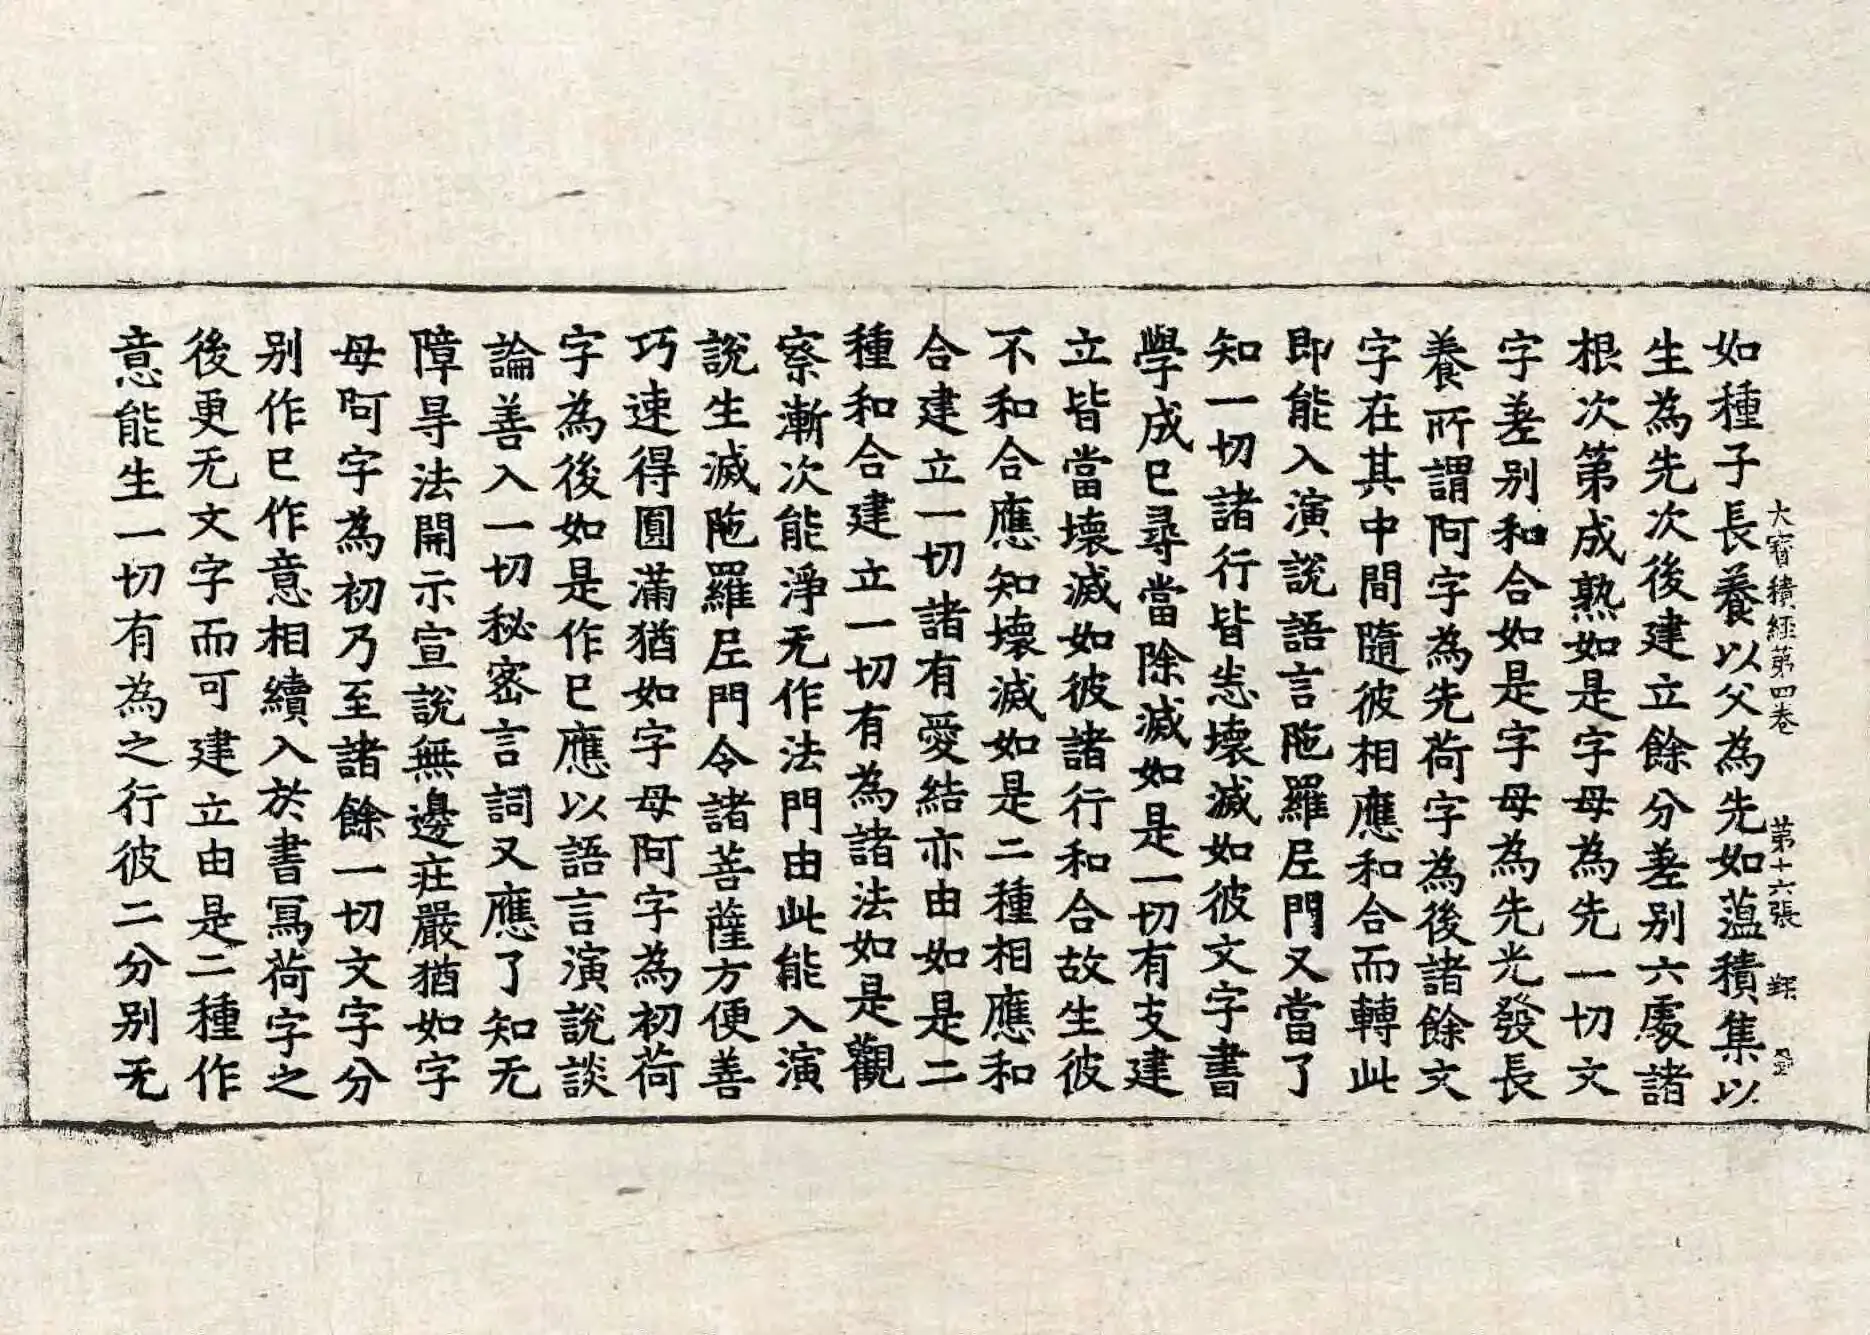 大寶積經第四卷 第十六張
如種子長養以父為先如薀積集以
生為先次後建立餘分差別六處諸
根次第成熟如是字母為先一切文
字差別和合如是字母為先光發長
養所謂阿字為先荷字為後諸餘文
字在其中間隨彼相應和合而轉此
即能入演說語言陁羅尼門又當了
知一切諸行皆悉壞滅如彼文字書
學成已尋當除滅如是一切有支建
立皆當壞滅如彼諸行和合故生彼
不和合應知壞滅如是二種相應和
合建立一切諸有愛結亦由如是二
種和合建立一切有為諸法如是觀
察漸次能淨无作法門由此能入演
說生滅陁羅尼門令諸菩薩方便善
巧速得圓滿猶如字母阿字為初荷
字為後如是作已應以語言演說談
論善入一切秘密言詞又應了知无
障㝵法開示宣說無邊莊嚴猶如字
母阿字為初乃至諸餘一切文字分
別作已作意相續入於書寫荷字之
後更无文字而可建立由是二種作
意能生一切有為之行彼二分別无